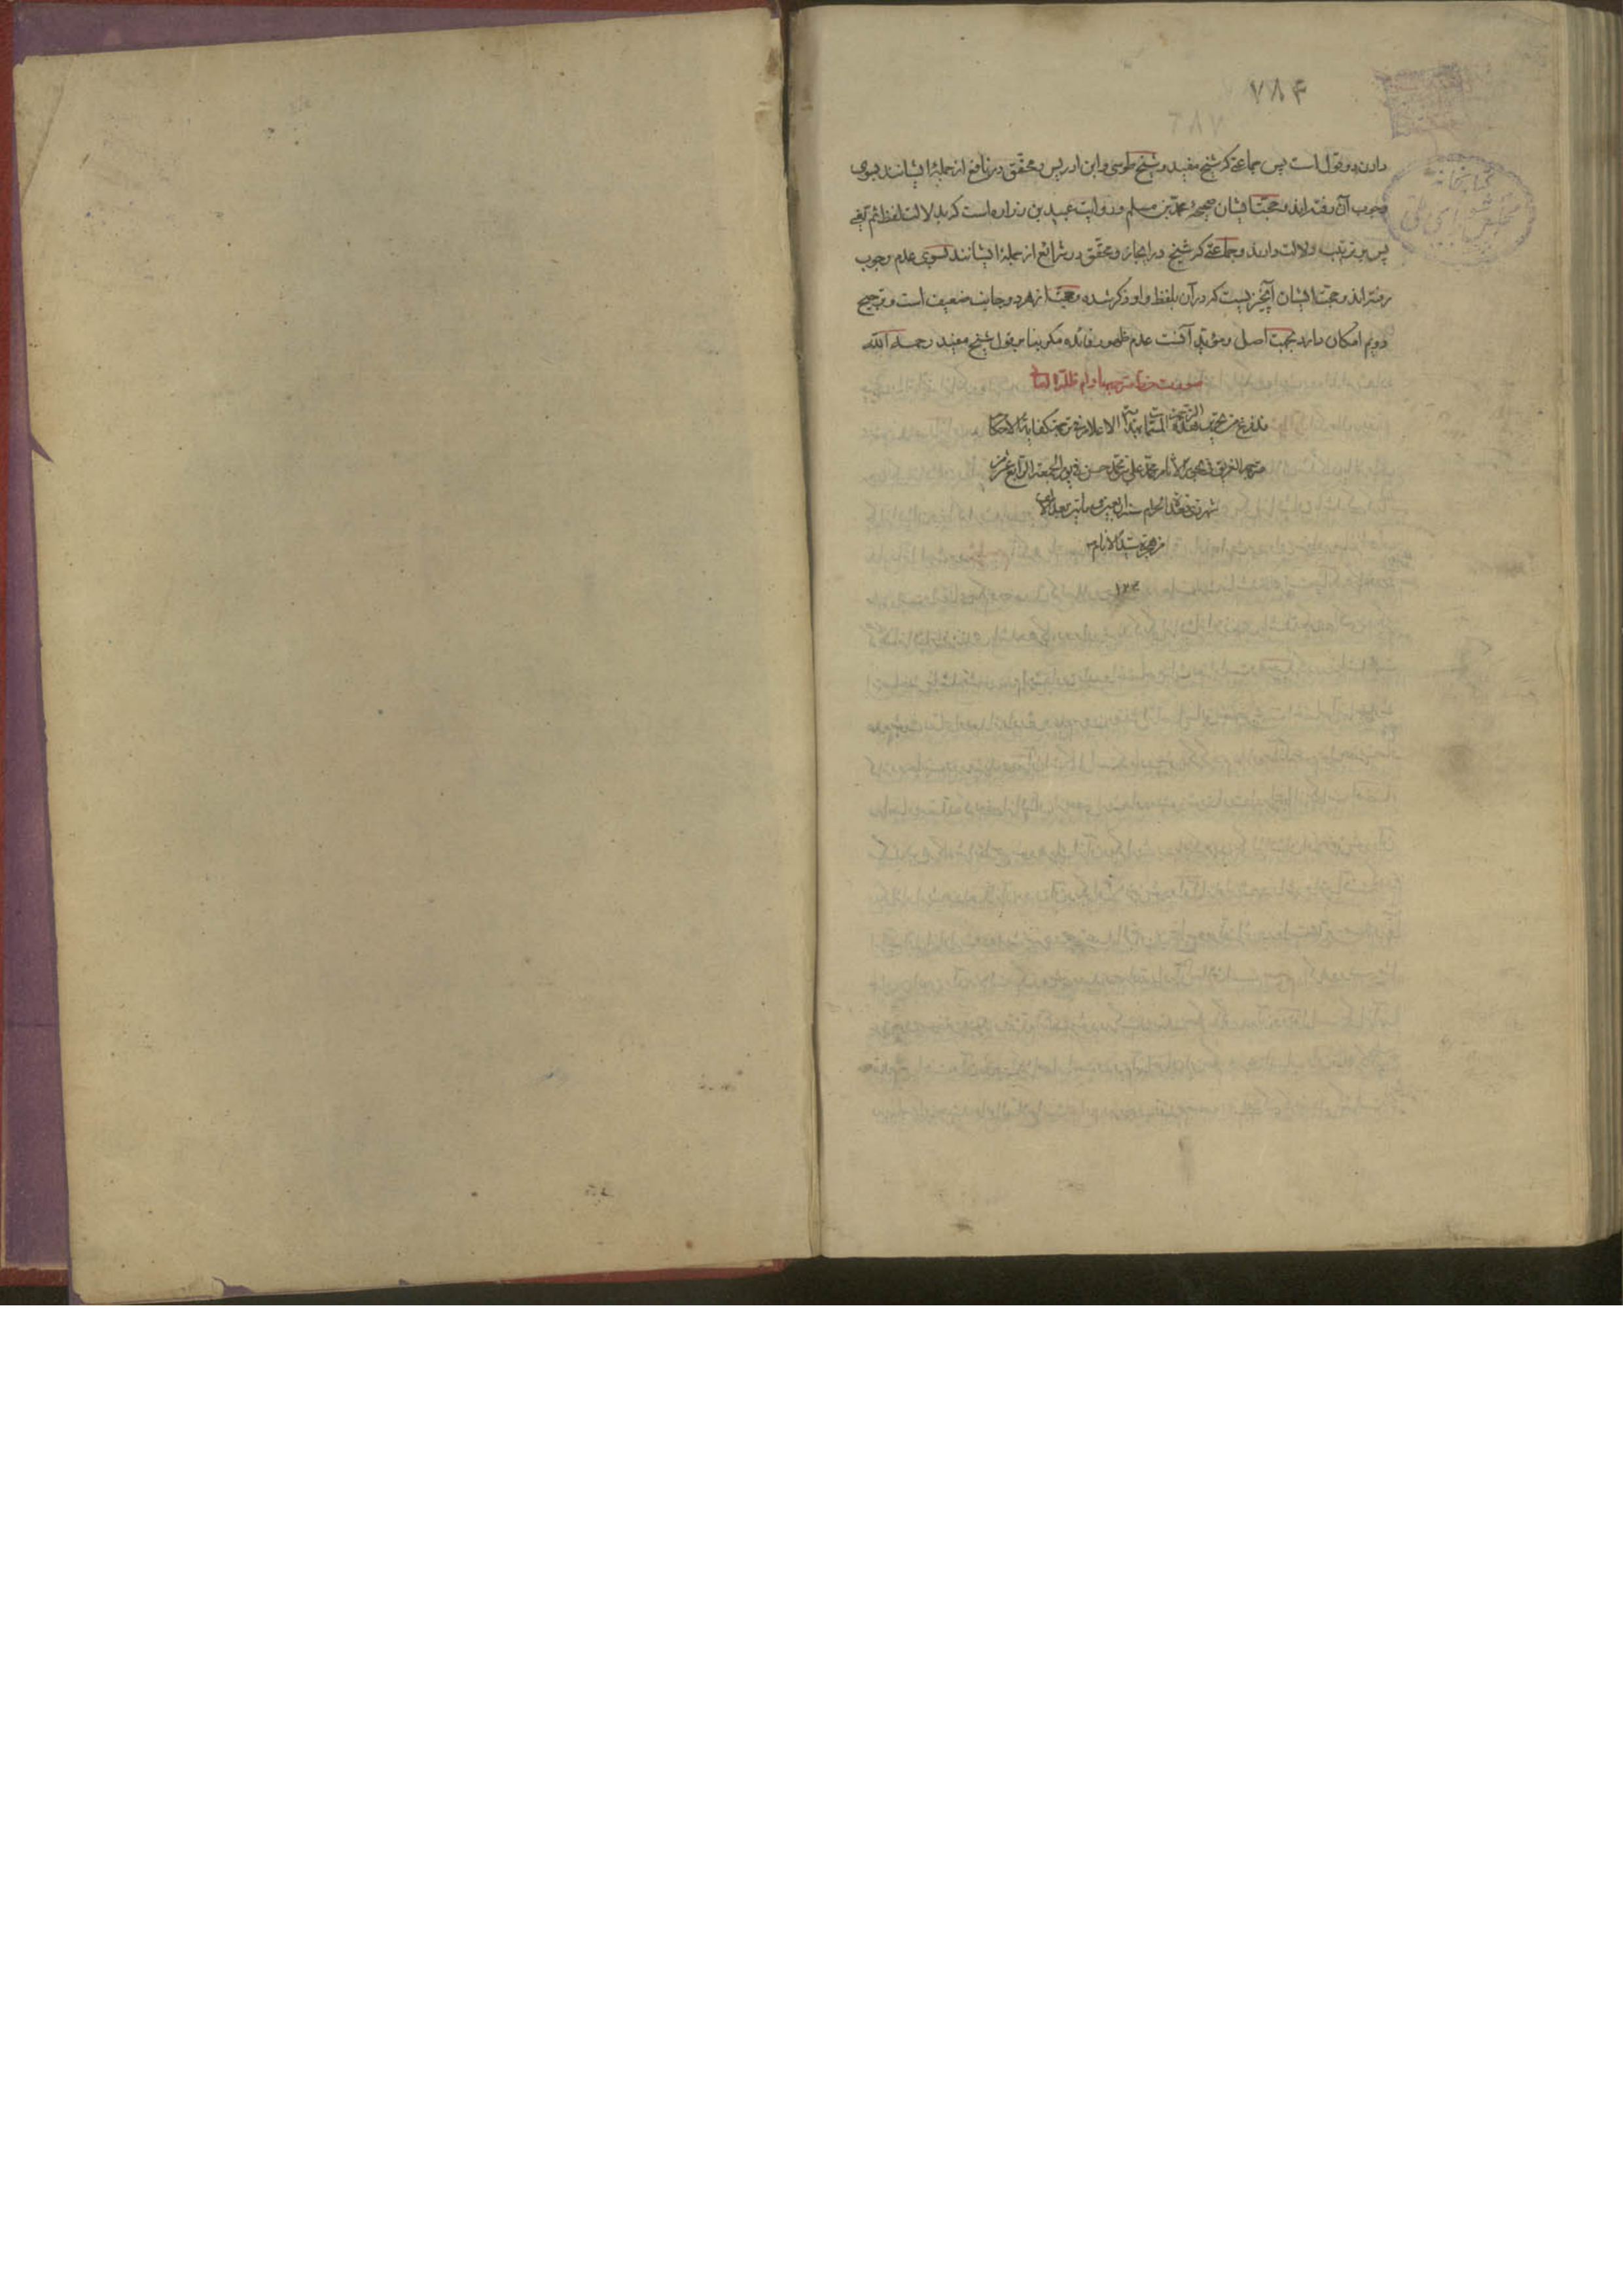 ۷۸۴
۷۸۷
دارد دو قول است پس جماعتی که شیخ مفید و شیخ طوسی و ابن ادریس و محقق در نافع از جملهٔ ایشانند بسوی
وجوب آن رفته‌اند و حجت ایشان صحیحهٔ محمد بن مسلم و روایت عبید بن زراره است که بدلالت لفظ ثم یعنی
پس بر ترتیب دلالت دارند و جماعتی که شیخ در ایجاز و محقق در شرائع از جملهٔ ایشانند بسوی عدم وجوب
رفته‌اند و حجت ایشان آنچیزیست که در آن بلفظ واو ذکر شده و حجت از هر دو جانب ضعیف است و ترجیح
دویم امکان دارد بجهت اصل و مؤید آنست عدم ظهور فائده مگر بنا بر قول شیخ مفید رحمه الله
صورت خط مترجمها دام ظله العالی
قد فرغ من تحریر هذه الترجمة المسماة الاعلام فی ترجمة کفایة الاحکام
مترجمها الغریق فی بحر الآثام محمد علی بن محمد حسن فی یوم الجمعة الرابع عشر من
شهر ذی قعدة الحرام سنة اربعین و ماتین بعد الالف
من هجرة سید الانام
۱۲۴۰
کتابخانه
مجلس شورای ملی